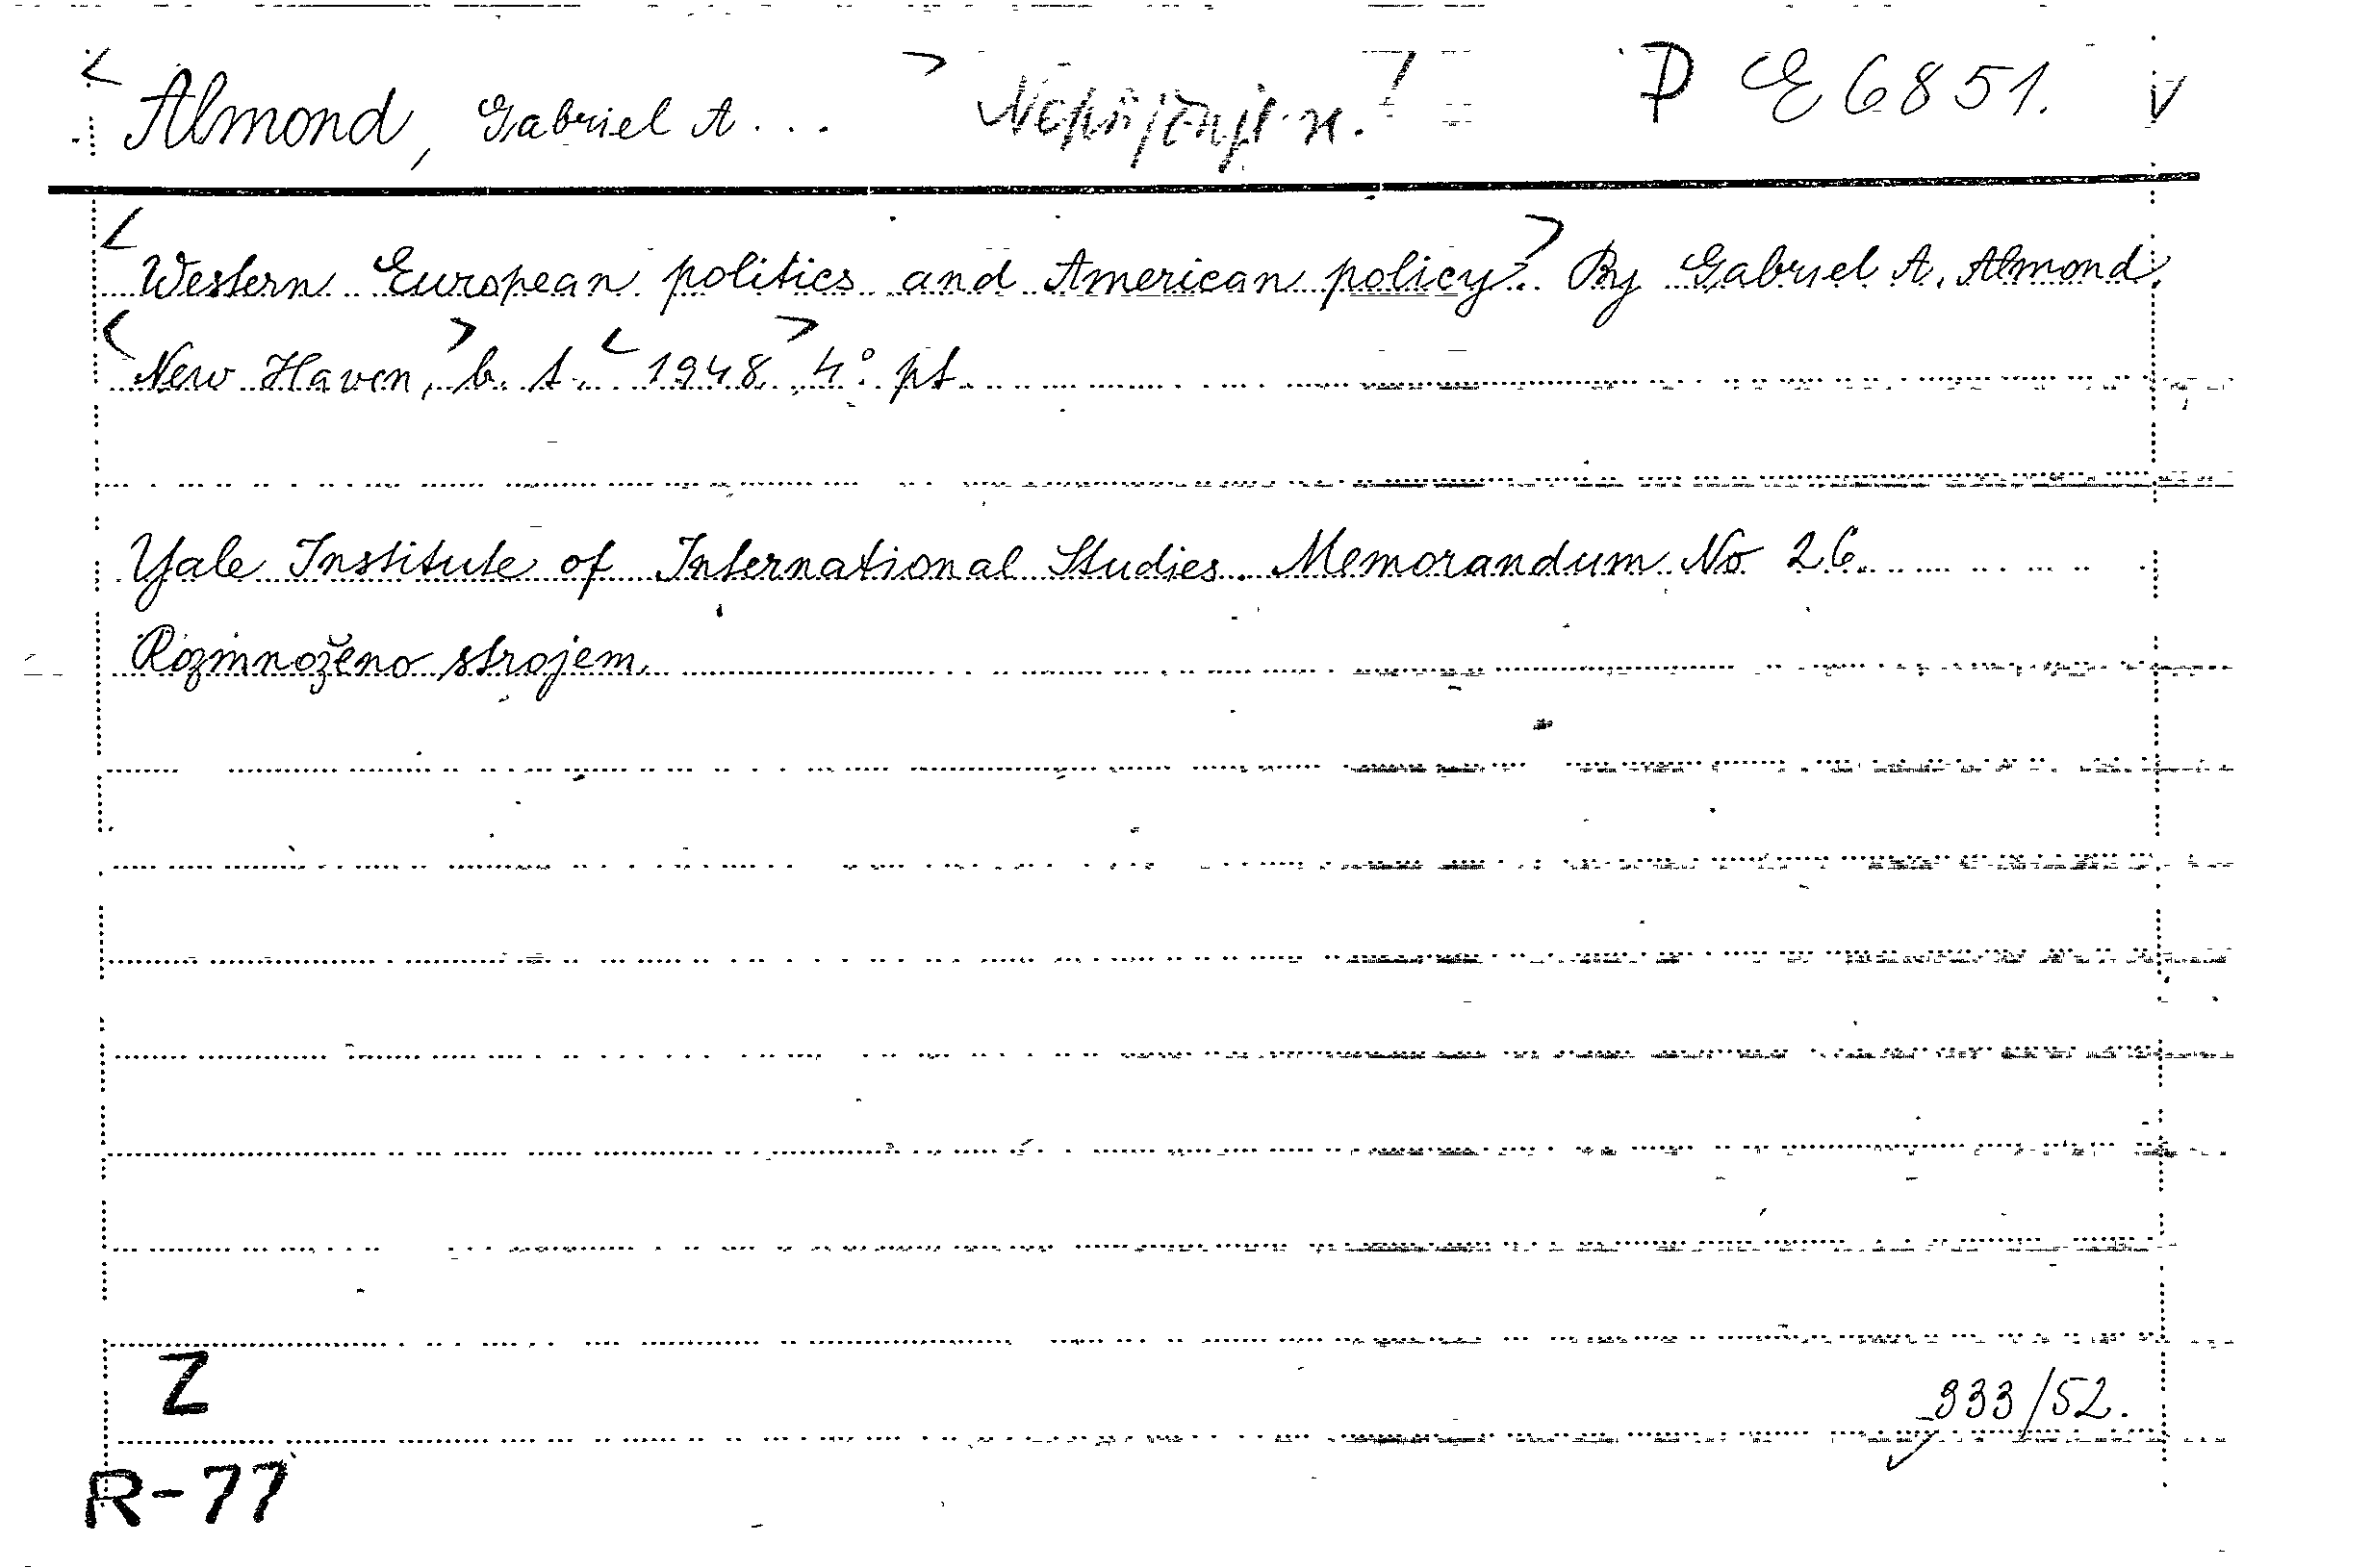 < Almond, Gabriel A... > P E 6851. v
< Western European politics and American policy. > By Gabriel A. Almond.
< New Haven, > b. t. < 1948 > 4° pt
Yale Institute of International Studies. Memorandum No 26.
Rozmnoženo strojem.
Z
933/52.
R-77